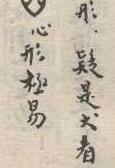 形．疑是犬者
心形極易